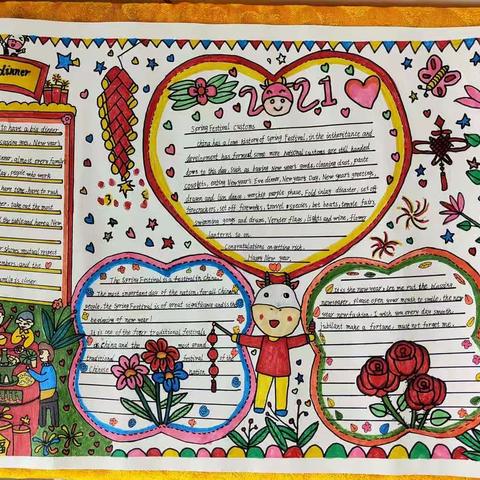 dinner
to have a big dinner
New Year's
dinner almost every family
day, people who work
have time, have to rush
dinner, take out the most
the table and have a New
shows mutual respect
members and the
family is closer
2021
Spring Festival Customs
china has a long history of Spring Festival, in the inheritance and
development has formed some more national customs are still handed
down to this day, such as buying New year's goods, cleaning dust, paste
couplets, eating New year's Eve dinner, New Years Day, New year's greetings,
dragon and lion dance, worship purple phase, Fold enjoy disaster, set off
firecrackers, set off fireworks, travel species, bet boats, temple fairs,
swimming gongs and drums, Vernier flags, lights and wine, flower
lanterns so on.
Congratulations on getting rich.
Happy New year,
The Spring Festival is a festival in China
The most importantace day of the nation, for all Chinese
people, the Spring Festival is of great significance and is the
beginning of new year!
It is one of the four traditional festivals
in China and the most grand
traditional festival of the
Chinese nation.
In this the new year, let me send the blessing
newspaper, please open your mouth to smile, the new
year new fuxing. I wish you every day smooth,
jubilant make a fortune, must not forget me.